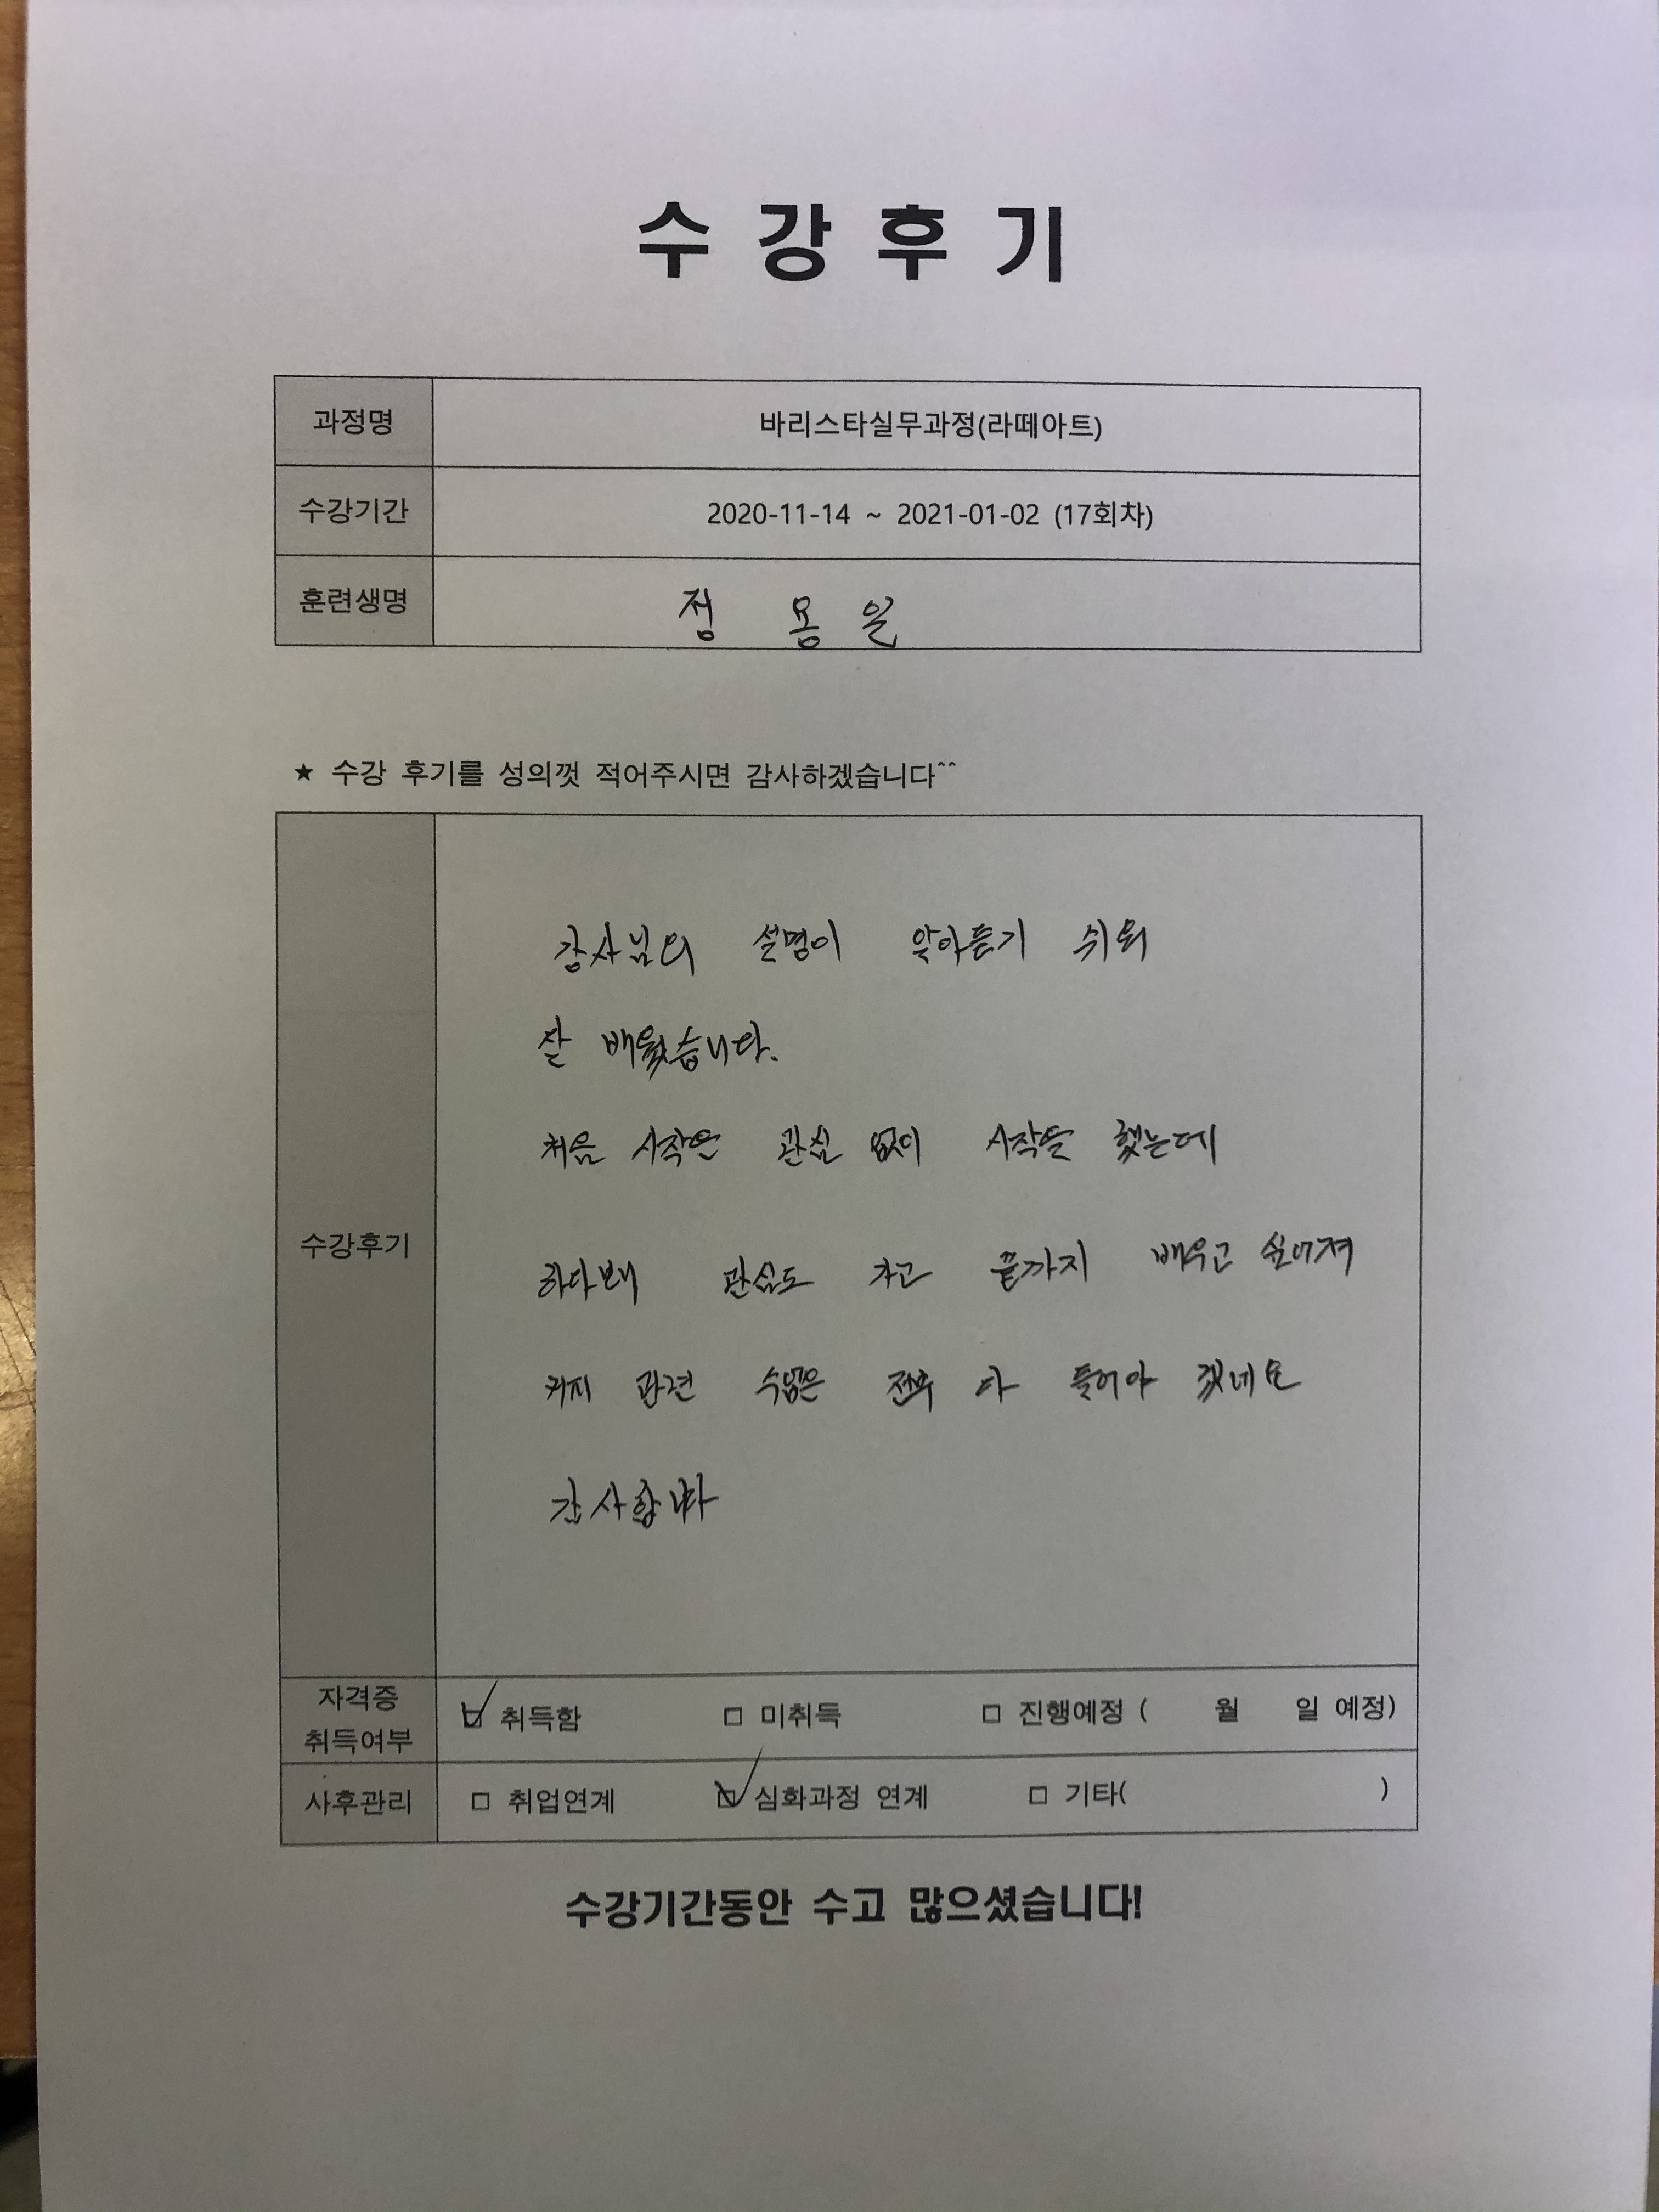 수강후기
과정명 바리스타실무과정(라떼아트)
수강기간 2020-11-14 ~ 2021-01-02 (17회차)
훈련생명 정 용 일
★ 수강 후기를 성의껏 적어주시면 감사하겠습니다^^
강사님의 설명이 알아듣기 쉬워
잘 배웠습니다.
처음 시작은 관심 없이 시작을 했는데
하다보니 관심도 가고 끝까지 배우고 싶어져
수강후기
커피 관련 수업은 전부 다 들어야 겠네요
감사합니다
자격증 취득여부 ☑ 취득함 □ 미취득 □ 진행예정 ( 월 일 예정)
사후관리 □ 취업연계 ☑ 심화과정 연계 □ 기타( )
수강기간동안 수고 많으셨습니다!